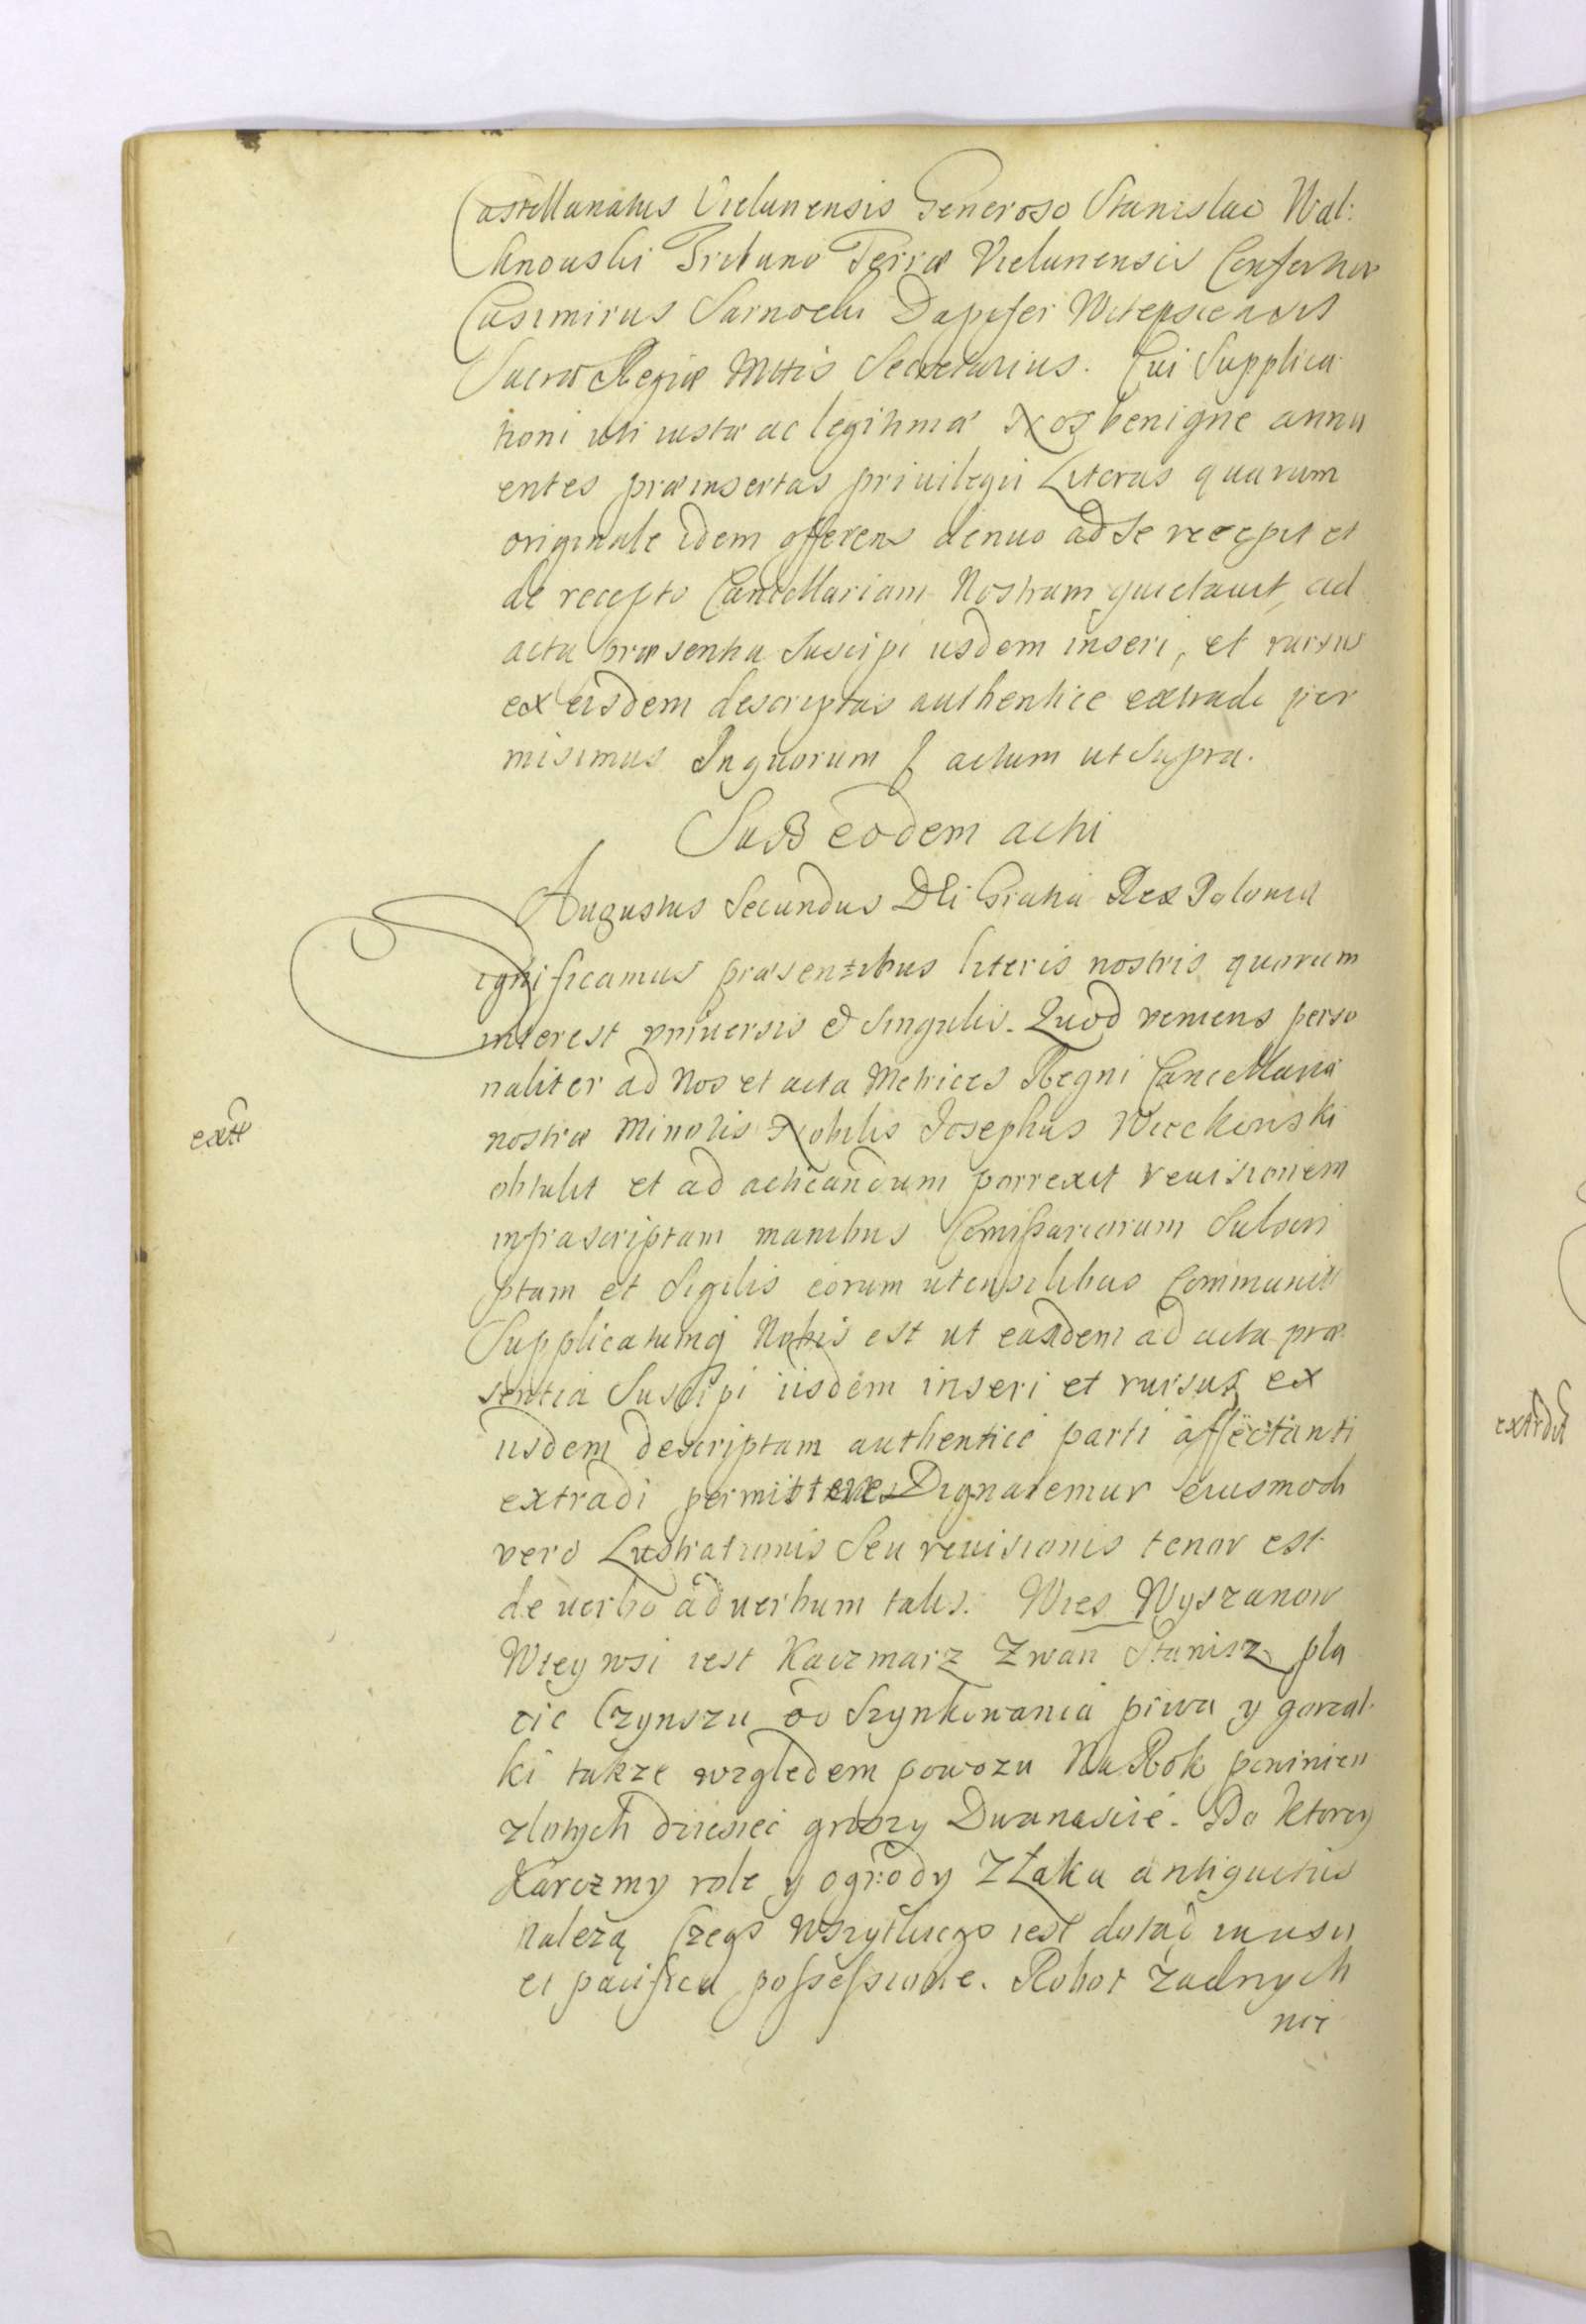 Castellanatus Vielunensis Generoso Stanislao Wal:
knouski Tribuno Terræ Vielunensis Confertur
Casimirus Sarnocki Dapifer Witepscensis
Sacræ Regiæ Mttis Secretarius. Cui Supplica
tioni uti iustæ ac legitimæ Nos benigne annu
entes præinsertas priuilegii Literas quarum
originale idem offerens denuo ad Se recepit et
de recepto Cancellariam Nostram quietauit, ad
acta præsentia Suscipi iisdem inseri, et rursus
ex eisdem descriptas authentice extradi per
misimus Inquorum f actum ut Supra.
Sub eodem acti
Augustus Secundus DEi Gratia Rex Poloniæ
Significamus præsentibus literis nostris quorum
interest vniuersis & Singulis. Quod veniens perso
naliter ad Nos et acta Metrices Regni Cancellariæ
extr
nostræ Minoris Nobilis Josephus Wieckowski
obtulit et ad acticandum porrexit reuisionem
infrascriptam manibus Comissariorum Subscri
ptam et Sigilis eorum utensilibus Communit
Supplicatumq Nobis est ut eandem ad acta præ
sentia Suscipi iisdem inseri et rursus ex
iisdem descriptam authentice parti affectanti
extradi permittere Dignaremur eiusmodi
vero Lustrationis Seu reuisionis tenor est
de verbo ad verbum talis. Wies Wyszanow
Wtey wsi iest Kaczmarz Zwan Stanisz pla
cic Czynszu od Szynkowania piwa y gorzal
ki takze względem powozu Na Rok powinien
zlotych dziesięć groszy Dwanascie. Do ktorey
Karczmy role y ogrody Z Łaka antiquitus
należą Czego wszytkiego iest dotad inusu
et pacifica possessione. Robot żadnych
nie